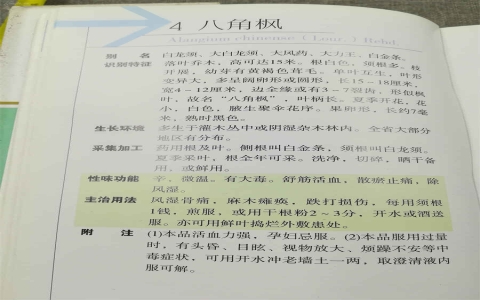 4 八角枫
别 名 白龙须、大白龙须、大风药、大力王、白金条。
识别特征 落叶乔木，高可达15米。根白色，须根多。枝
开展，幼芽有黄褐色茸毛。单叶互生，叶形
变异大，多呈阔卵形或圆形，长15～18厘米，
宽4～12厘米，边全缘或有3～7裂齿，形似枫
叶，故名“八角枫”，叶柄长。夏季开花，花
小，白色，腋生聚伞花序。果卵形，长约7毫
米，熟时黑色。
生长环境 多生于灌木丛中或阴湿杂木林内。全省大部分
地区有分布。
采集加工 药用根及叶。侧根叫白金条，须根叫白龙须。
夏季采叶，根全年可采。洗净，切碎，晒干备
用，或鲜用。
性味功能 辛，微温。有大毒。舒筋活血，散瘀止痛，除
风湿。
主治用法 风湿骨痛，麻木瘫痪，跌打损伤，每用须根
1钱，煎服，或用干根粉2～3分，开水或酒送
服。亦可用鲜叶捣烂外敷患处。
附 注 (1)本品活血力强，孕妇忌服。(2)本品服用过量
时，有头昏、目眩、视物放大、烦躁不安等中
毒症状，可用开水冲老墙土一两，取澄清液内
服可解。